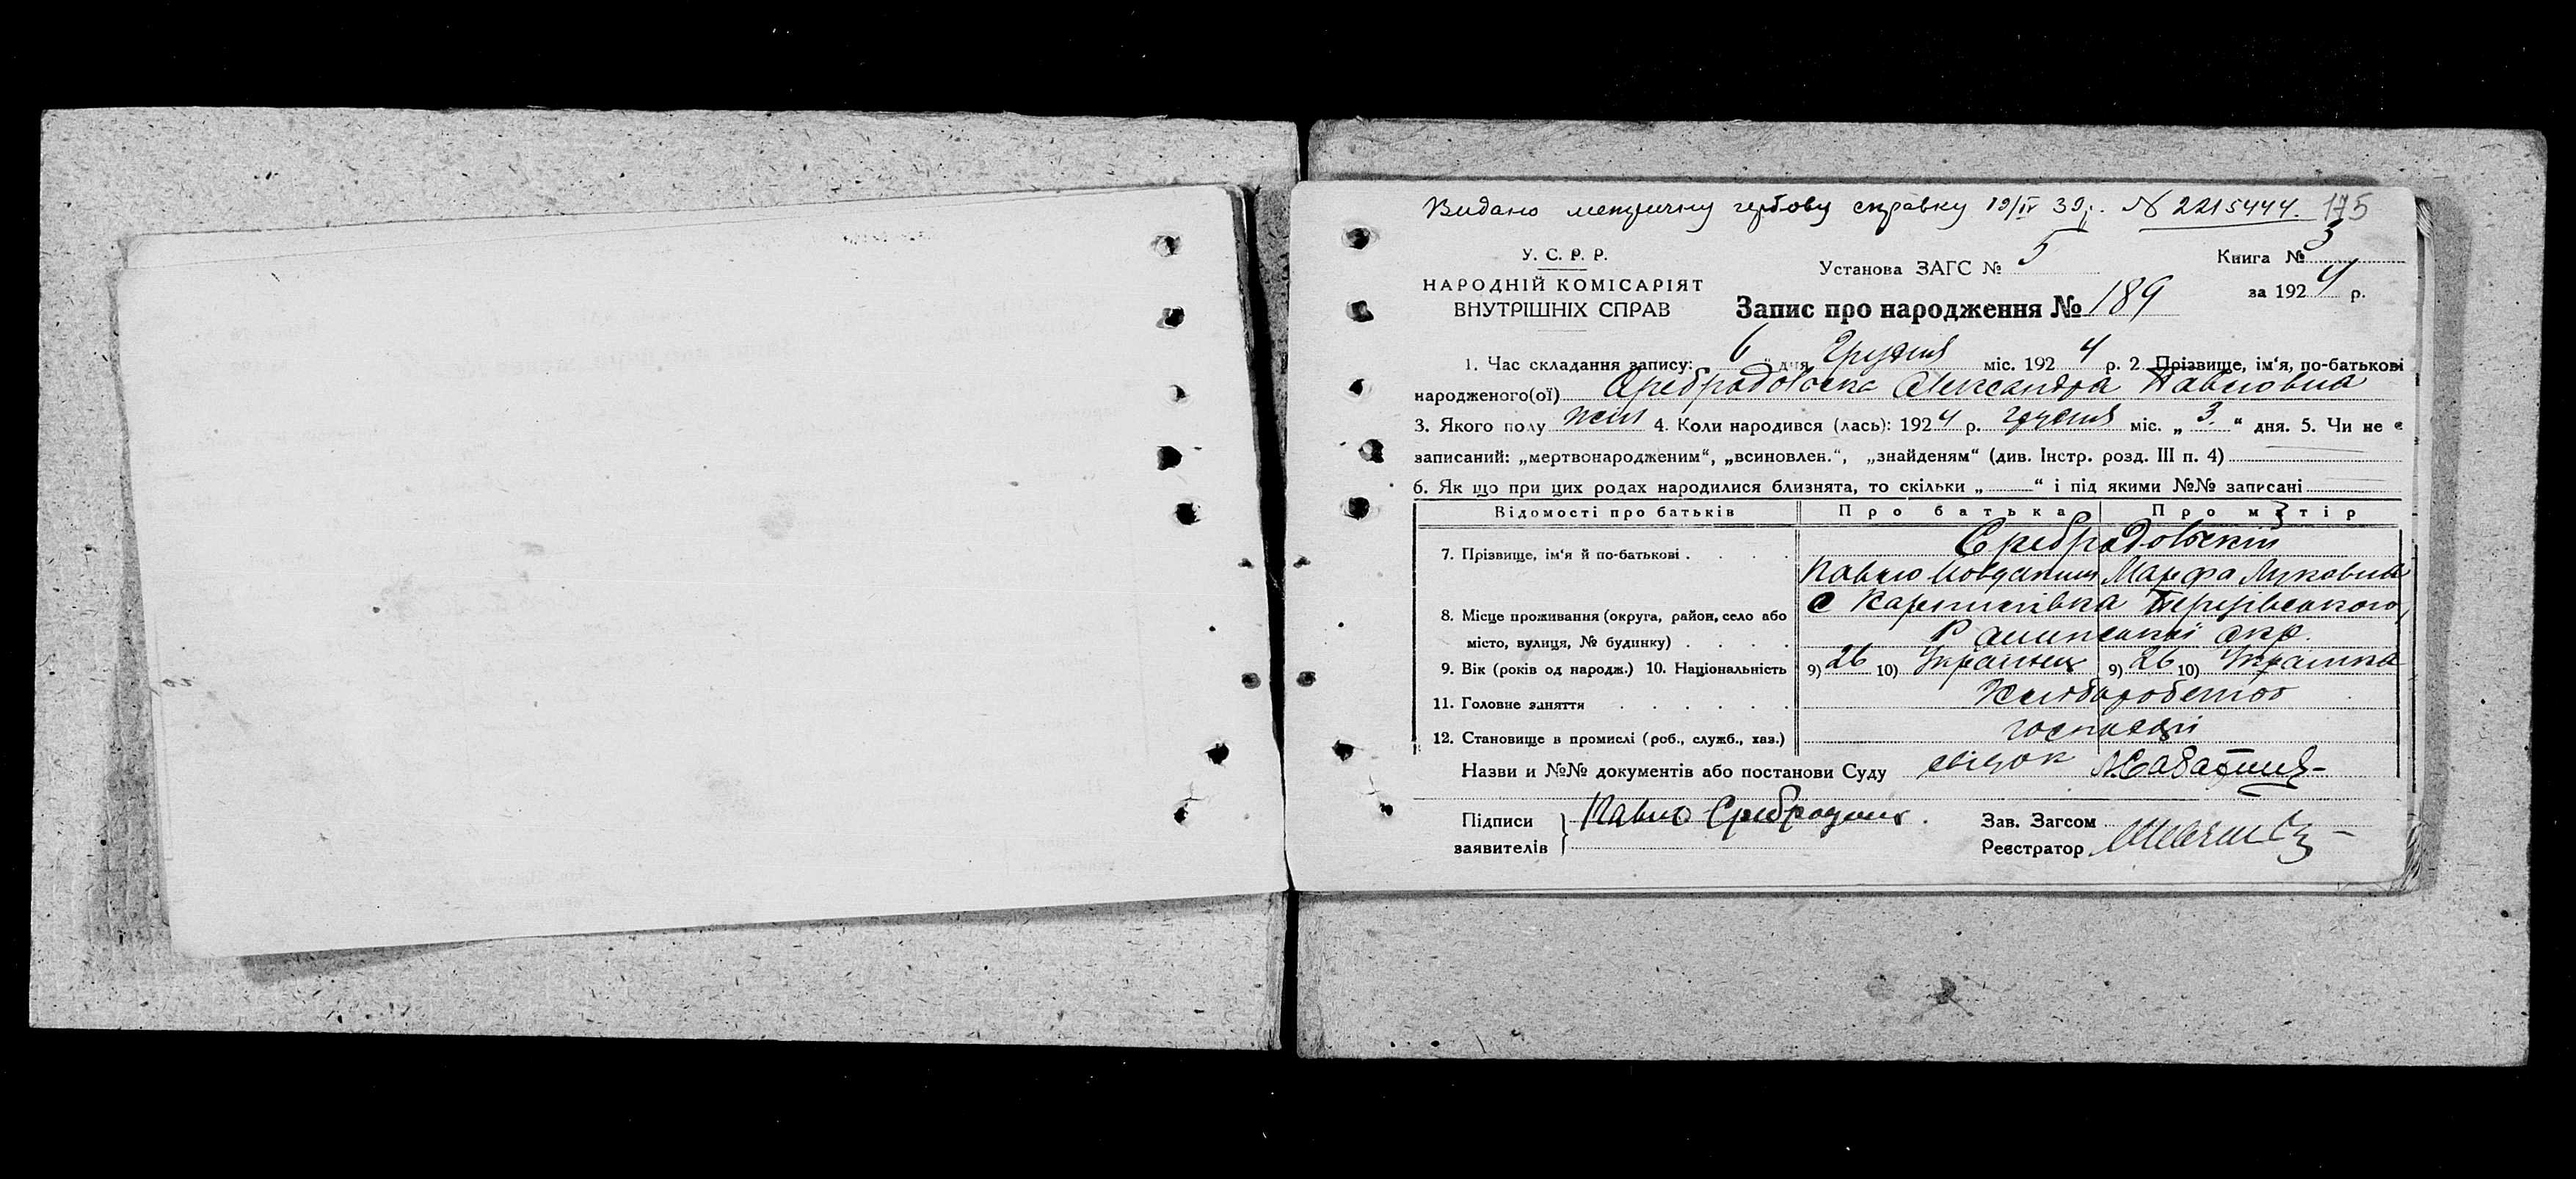 Видано метричну гербову справку 19/IV 39р. № 2215444. 175
У. С. Р. Р.
НАРОДНІЙ КОМІСАРІЯТ
ВНУТРІШНІХ СПРАВ
Установа ЗАГС № 5
Книга № 3
за 1924 р.
Запис про народження № 189
1. Час складання запису: 6 " дня Грудня міс. 1924 р. 2. Прізвище, ім'я, по-батькові
народженого(ої) Сребродовська Александра Павловна
3. Якого полу жін 4. Коли народився (лась): 1924 р. грудня міс. „ 3 “ дня. 5. Чи не є
записаний: „мертвонародженим“, „всиновлен.“, „знайденям“ (див. Інстр. розд. III п. 4)
6. Як що при цих родах народилися близнята, то скільки „ “ і під якими №№ записані
Відомості про батьків Про батька Про матір
7. Прізвище, ім'я й по-батькові . . . . Сребродовскій
Павло Марфа Луковна
8. Місце проживання (округа, район, село або с
місто, вулиця, № будинку) . . . . окр.
9. Вік (років од народж.) 10. Національність 9) 26 10) Українец 9) 26 10) Українка
11. Головне заняття . . . . . . Хлібороботво
12. Становище в промислі (роб., служб., хаз.) господарі
Назви и №№ документів або постанови Суду свідок
Підписи
заявителів
Павло
Зав. Загсом
Реєстратор